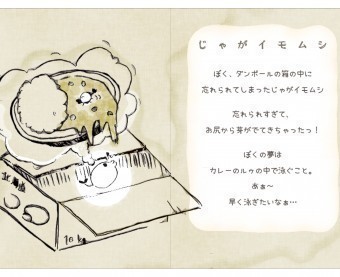 じゃがイモムシ
ぼく、ダンボールの箱の中に
忘れられてしまったじゃがイモムシ
忘れられすぎて、
お尻から芽がでてきちゃったっ！
ぼくの夢は
カレーのルゥの中で泳ぐこと。
あぁ～
早く泳ぎたいなぁ…
北海道
10kg